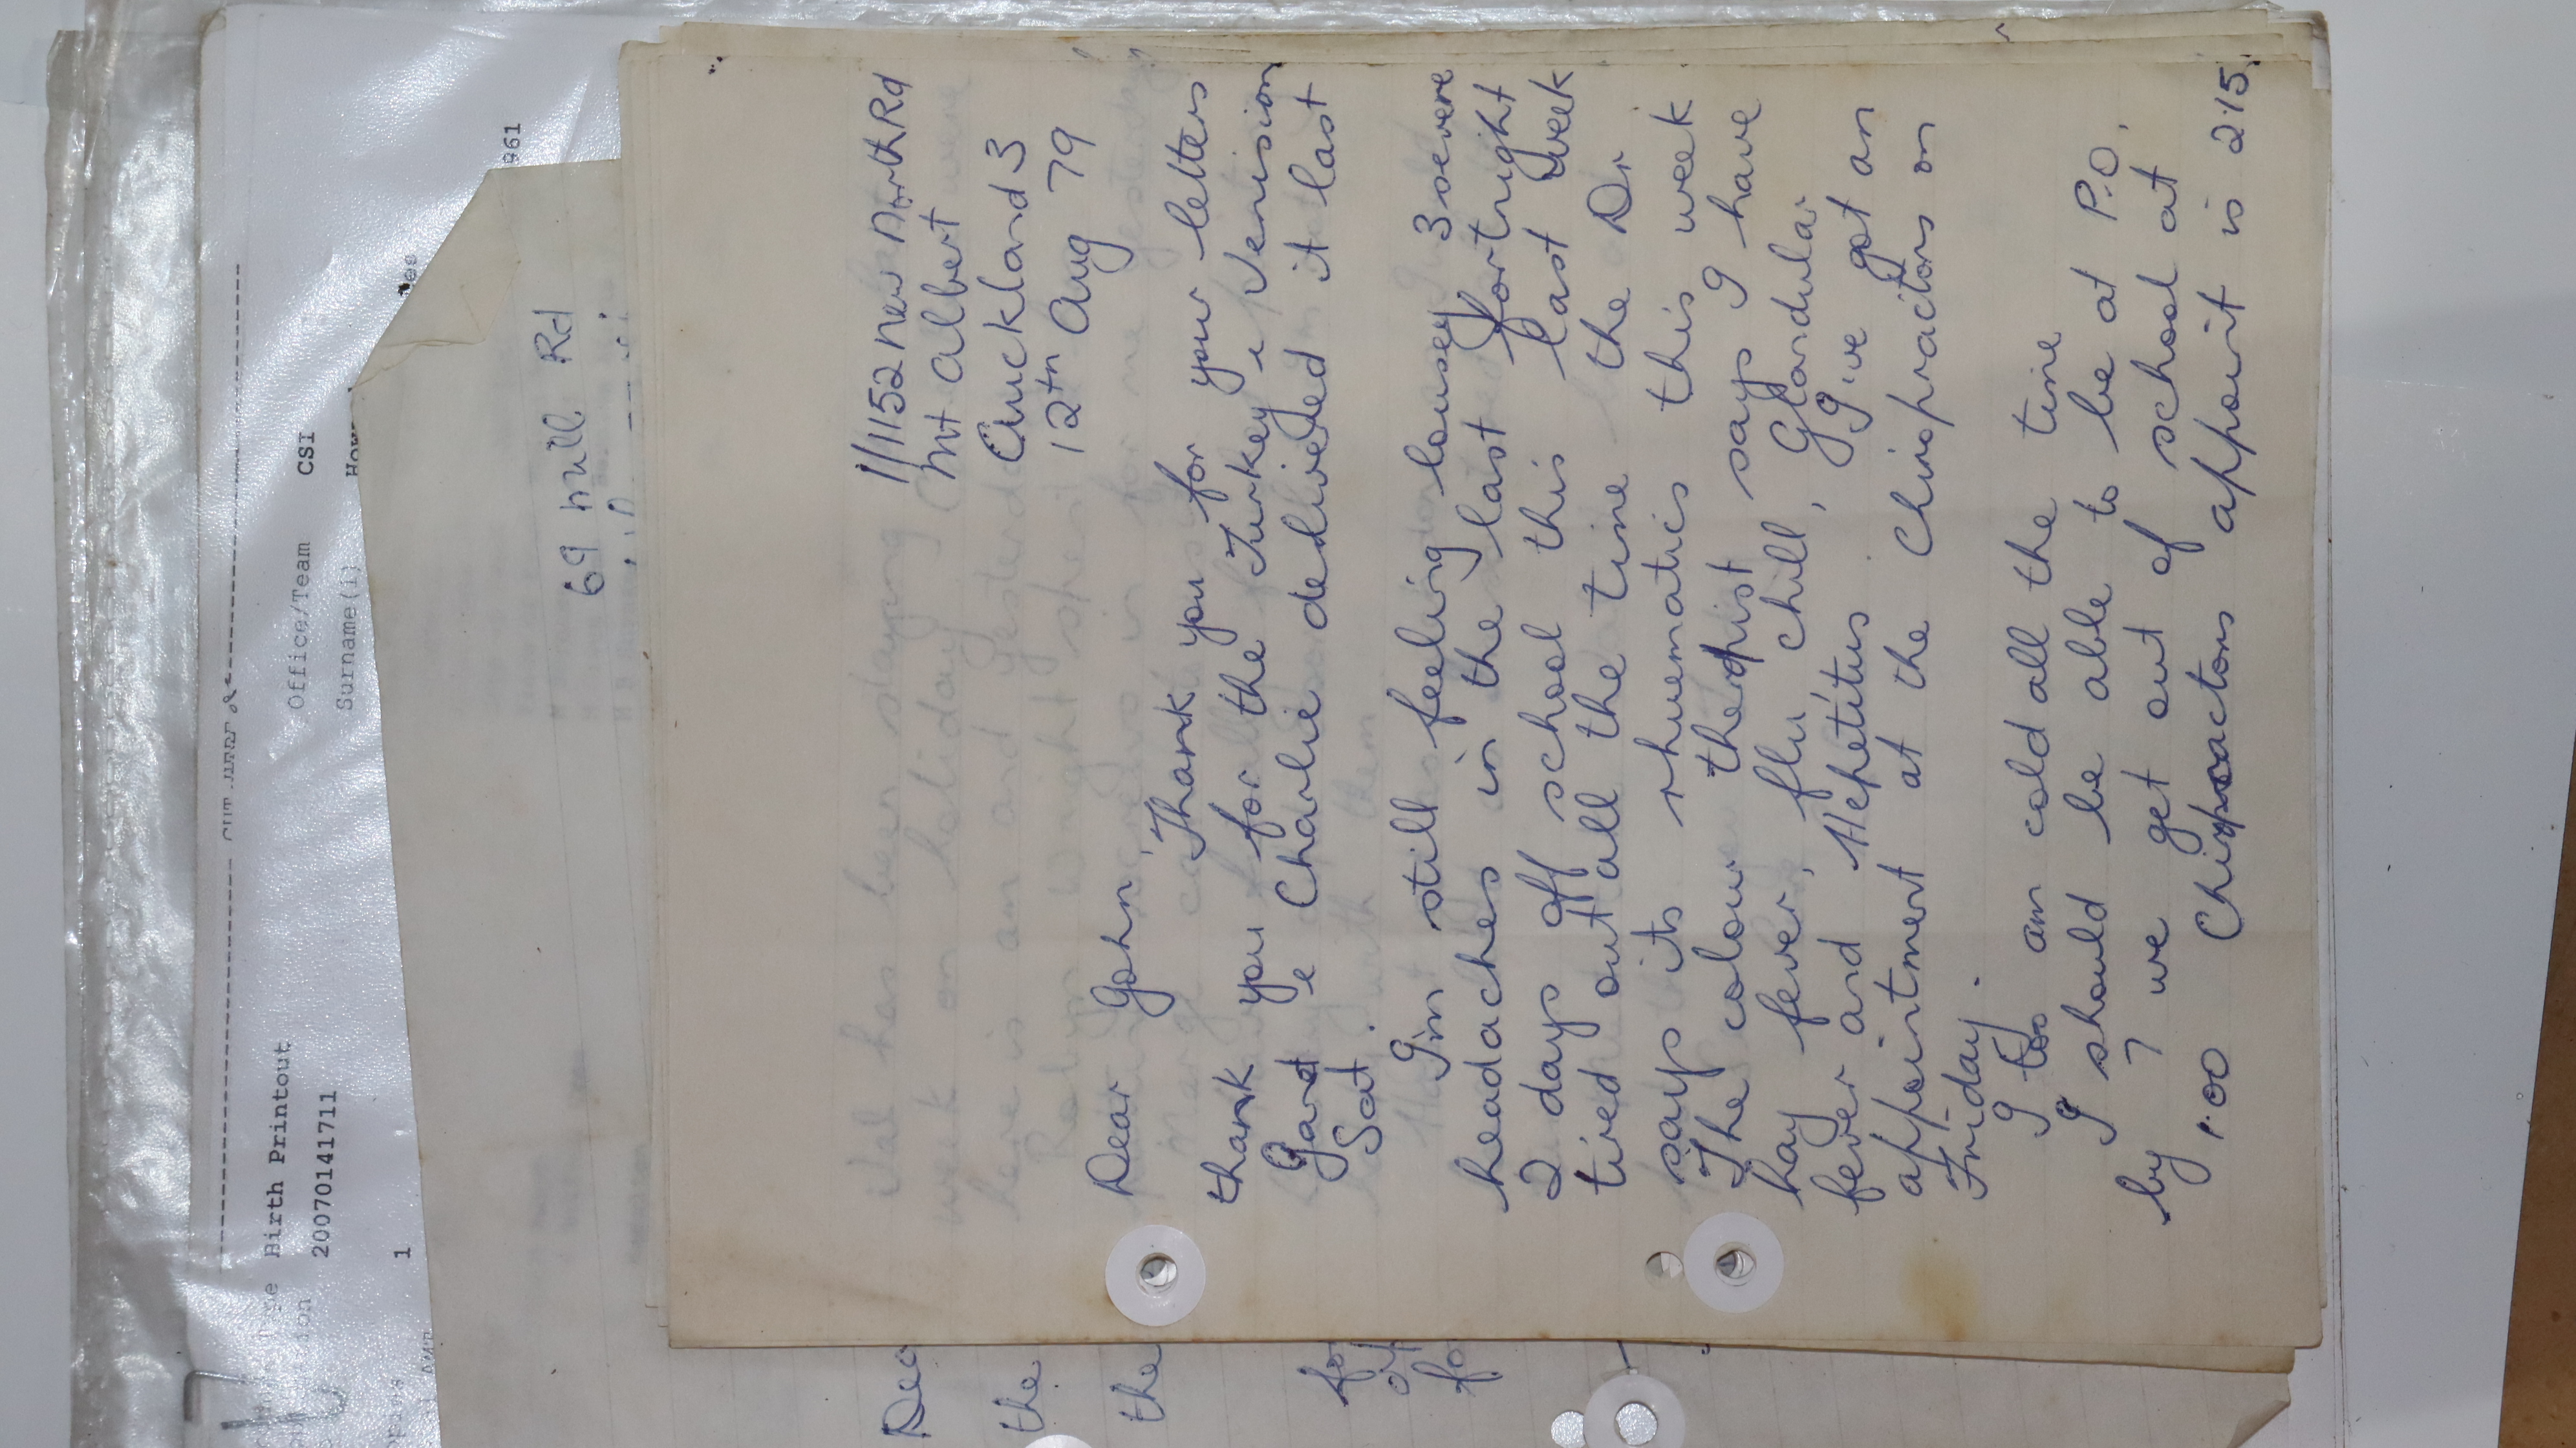 1/1152 New North Rd
Mt Albert
Auckland 3
12th Aug 79
Dear John,
Thank you for your letters
thank you for the Turkey & Venision
Janet & Charlie delivered it last
Sat.
I'm still feeling lousey 3 severe
headaches in the last fortnight
2 days off school this last week
tired out all the time the Dr
says its rhuematics this week
The colour therapist says I have
hay fever, flu chill, Glandular
fever and Hepetitus. I've got an
appointment at the Chiropractors on
Friday.
I too am cold all the time
I should be able to be at P.O.
by 7 we get out of school at
1.00 Chiropractors appoint is 2.15.
69 Hill Rd
Birth Printout
20070141711
1
Office/Team CSI
Surname(i)
961
Dea
the
the
fo
fo